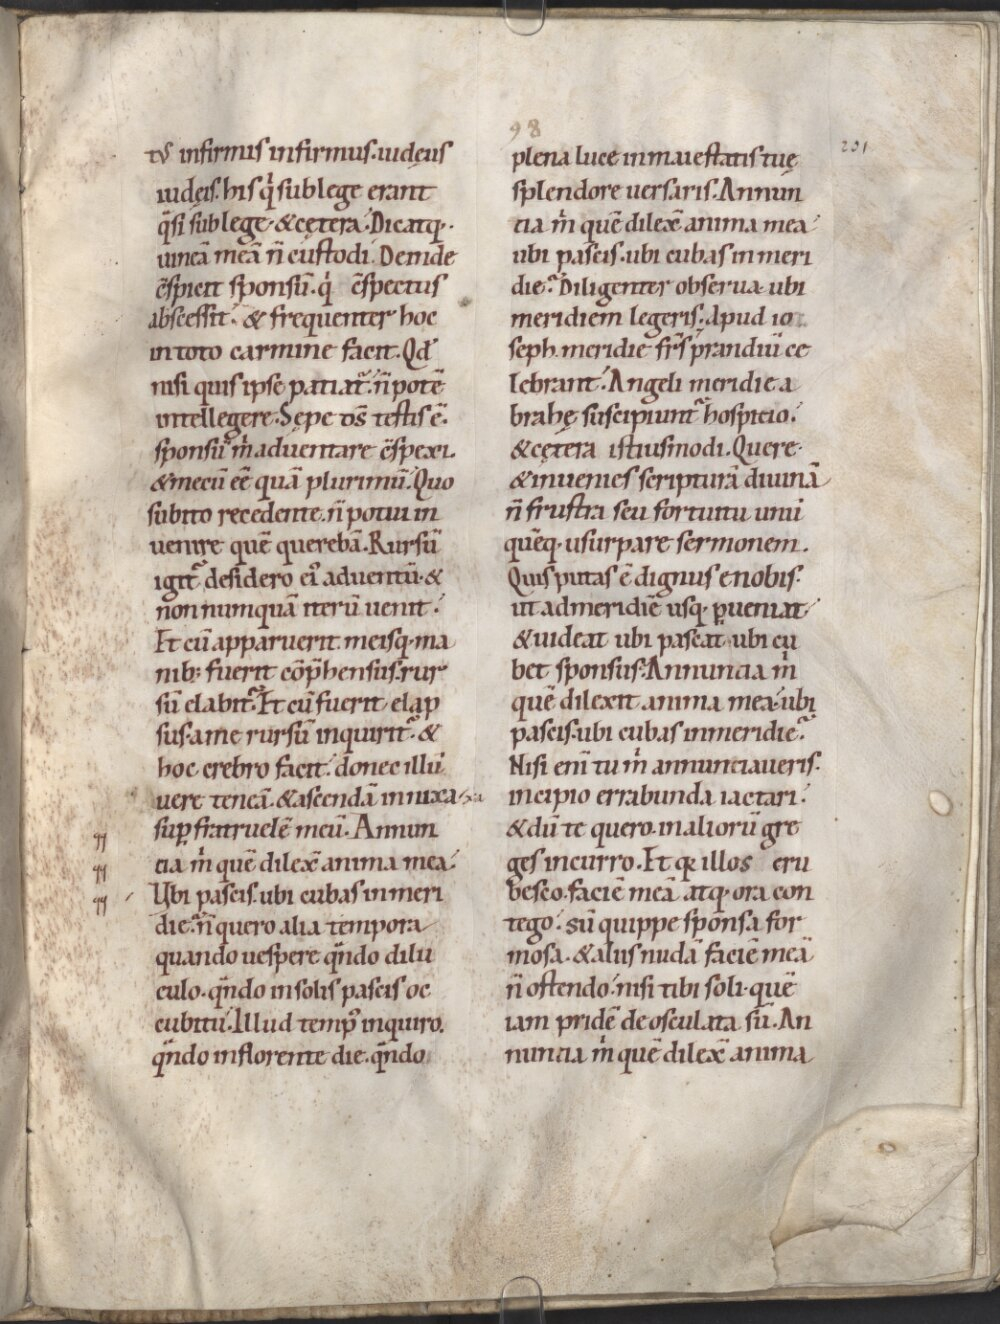 98
201
tu᷒ infirmis infirmus. iudęus
iudęis. his q͛ sub lege erant
q̄si sub lege. &cętera. Dicatq;.
uineā meā n̄ custodi. Deinde
c̄spicit sponsū. q͛ c̄spectus
abscessit. & frequenter hoc
in toto carmine facit. Qd̄
nisi quis ipse patiat᷑. n̄ potē
intellegere. Sępe ds̄ testis ē.
sponsū m͛ aduentare c̄spexi.
& mecū eē quā plurimū. Quo
subito recedente. n̄ potui in
uenire quē querebā. Rursū
igit᷑ desidero ei᷒ aduentū. &
non numquā iterū uenit.
Et cū apparuerit meisq; ma
nib; fuerit cōp̄hensus. rur
sū elabit᷑. Et cū fuerit elap
sus. a me rursū inquirit᷑. &
hoc crebro facit. donec illū
uere teneā. & ascendā in nixa
sup̱ fratruelē meū. Annun
cia m͛ quē dilexͭ anima mea.
Ubi pascis. ubi cubas in meri
die. n̄ quero alia tempora
quando uespere q̄ndo dilu
culo. q̄ndo in solis pascis oc
cubitū. Illud temp᷒ inquiro.
q̄ndo in florente die. q̄ndo
plena luce in maiestatis tuę
splendore uersaris. Annun
cia m͛ quē dilexͭ anima mea
ubi pascis. ubi cubas in meri
die. Diligenter obserua ubi
meridiem legeris. Apud io
seph. meridie fr̄s prandiū ce
lebrant. Angeli meridie a
brahę suscipiunt᷑ hospicio.
&cętera istiusmodi. Quere.
& inuenies scripturā diuinā
n̄ frustra seu fortuitu unū
quēq; usurpare sermonem.
Quis putas ē dignus e nobis.
ut ad meridiē usq; p̱ueniat
& uideat ubi pascat. ubi cu
bet sponsus. Annuncia m͛
quē dilexit anima mea. ubi
pascis. ubi cubas in meridie.
Nisi eni̅ tu m͛ annunciaueris.
incipio errabunda iactari.
& dū te quero. in aliorū gre
ges incurro. Et qꝛ illos eru
besco. faciē meā atq; ora con
tego. sū quippe sponsa for
mosa. & aliis nudā faciē meā
n̄ ostendo. nisi tibi soli. quē
iam pridē deosculata sū. An
nuncia m͛ quē dilexͭ anima